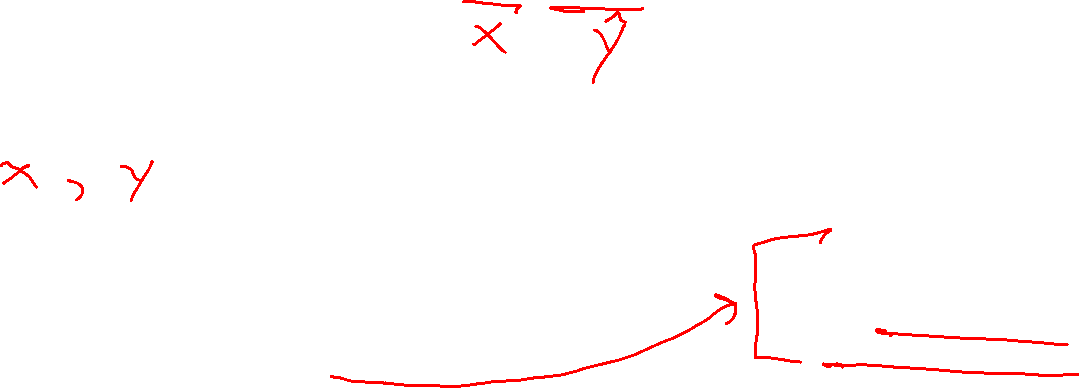 x y
x , y